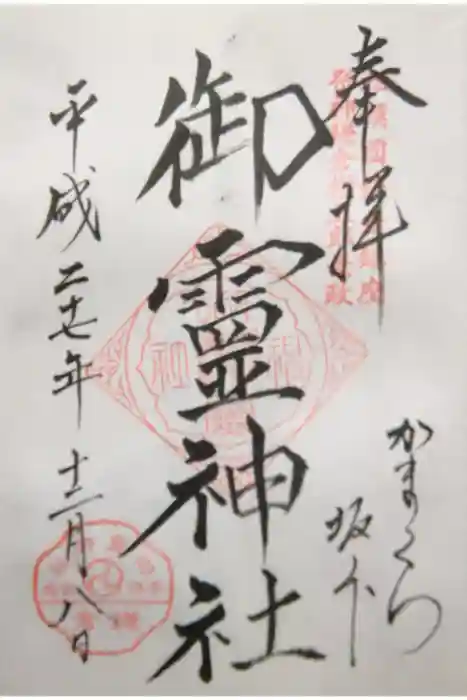 奉拝
かまくら
坂ノ下
御靈神社
平成二十七年十二月八日